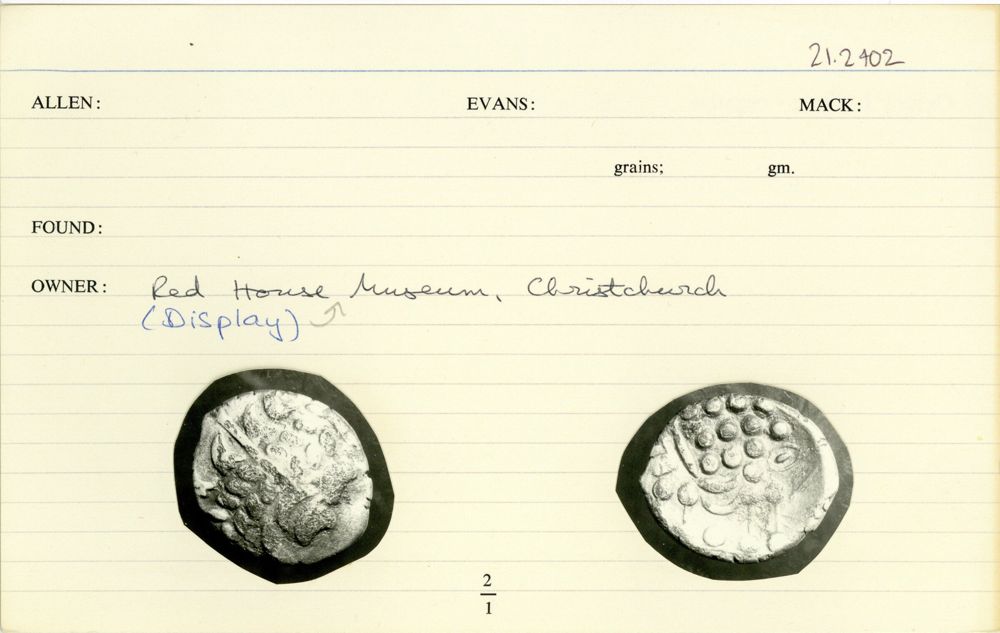 21.2402
ALLEN: EVANS: MACK:
grains; gm.
FOUND:
OWNER: Red House Museum, Christchurch
(Display)
2
1